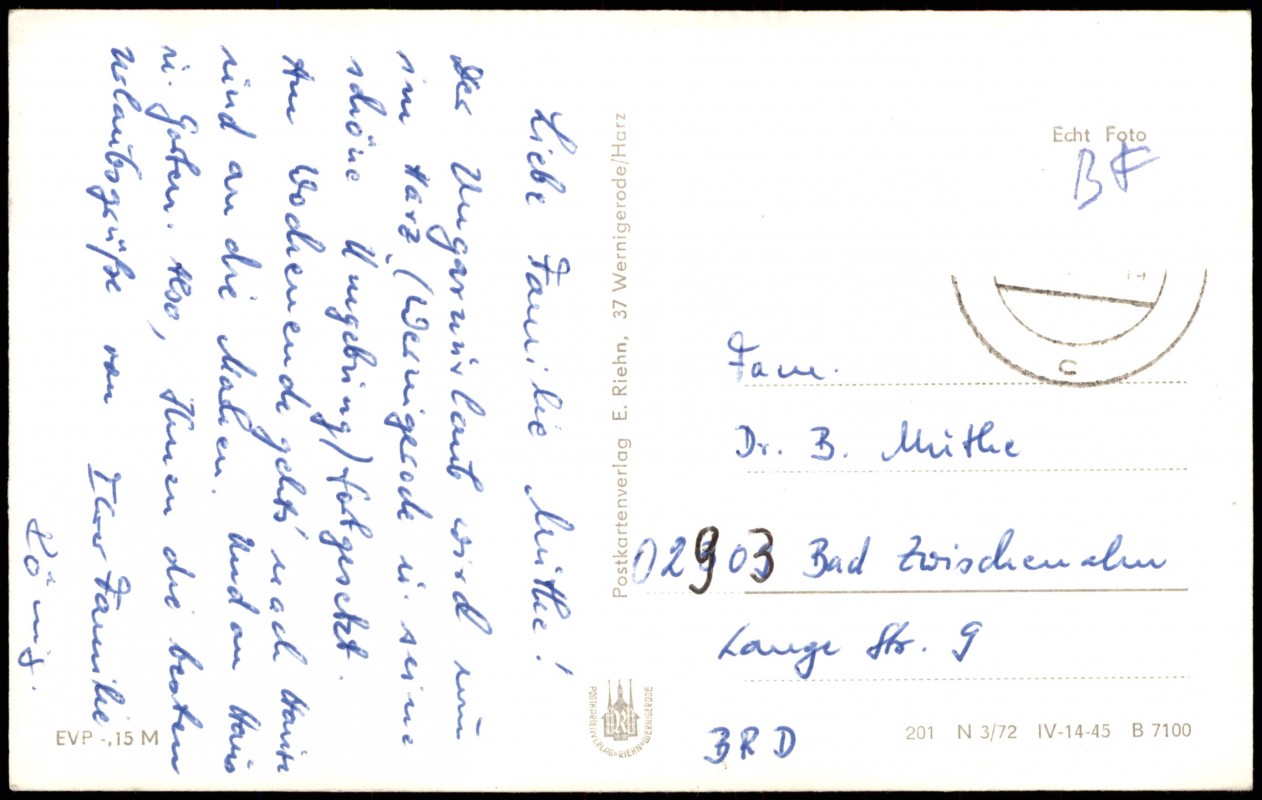 Liebe Familie Müthe!
Der Ungarnurlaub wird nun
im Harz (Wernigerode u. seine
schöne Umgebung) fortgesetzt.
Am Wochenende geht's nach Hause
und an die Maken. Und an Haus
u. Garten. Also, Ihnen die besten
Urlaubsgrüße von Ihrer Familie
König.
EVP -,15 M
Postkartenverlag E. Riehn, 37 Wernigerode/Harz
POSTKARTENVERLAG·RIEHN·WERNIGERODE
Echt Foto
BF
Fam.
Dr. B. Müthe
02903 Bad Zwischenahn
Lange Str. 9
BRD
201 N 3/72 IV-14-45 B 7100
c